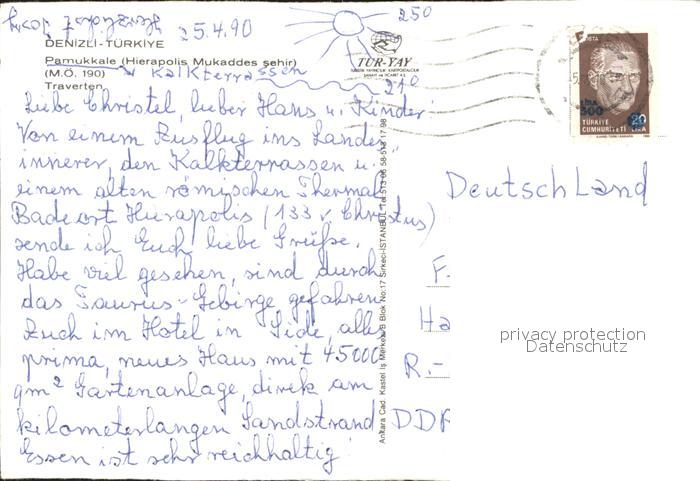 25.4.90
25°
DENIZLI-TÜRKİYE
Pamukkale (Hierapolis Mukaddes şehir)
(M.Ö. 190) Kalkterrassen
Traverten
TUR-YAY
21°
Liebe Christel, lieber Hans u. Kinder!
Von einem Ausflug ins Landes-
innere, den Kalkterrassen u.
einem alten römischen Thermal
Badeort Hierapolis (133 v Christus)
sende ich Euch liebe Grüße.
Habe viel gesehen, sind durch
das Taurus-Gebirge gefahren
Auch im Hotel in Side, alles
prima, neues Haus mit 45000
qm² Gartenanlage, direk am
kilometerlangen Sandstrand
Essen ist sehr reichhaltig!
POSTA
LİRA
500
20
TÜRKİYE
CUMHURİYETİ LİRA
Deutschland
F.
Ha
R.-
DDR
privacy protection
Datenschutz